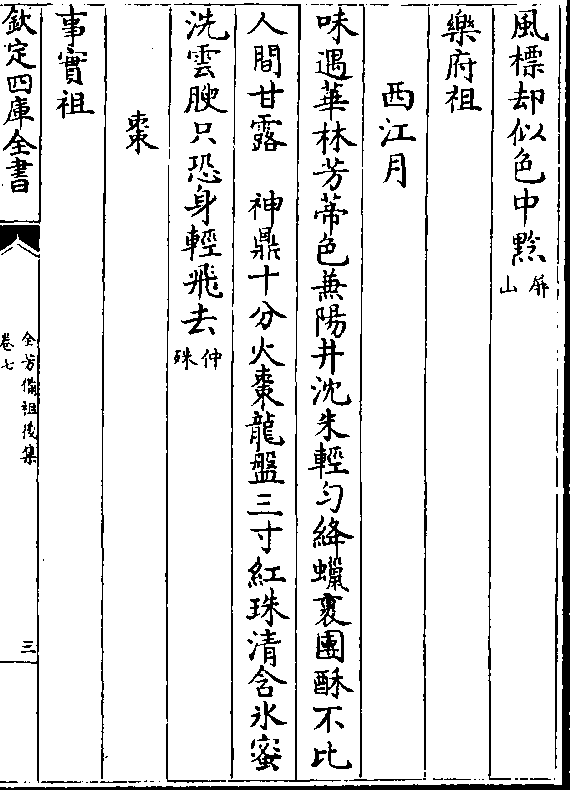 風標却似色中黥屏山
樂府祖
西江月
味過華林芳蒂色兼陽井沈朱輕勻絳蠟裹團酥不比
人間甘露　神鼎十分火棗龍盤三寸紅珠清含氷蜜
洗雲腴只恐身輕飛去仲殊
棗
事實祖
欽定四庫全書
全芳備祖後集
卷七
三